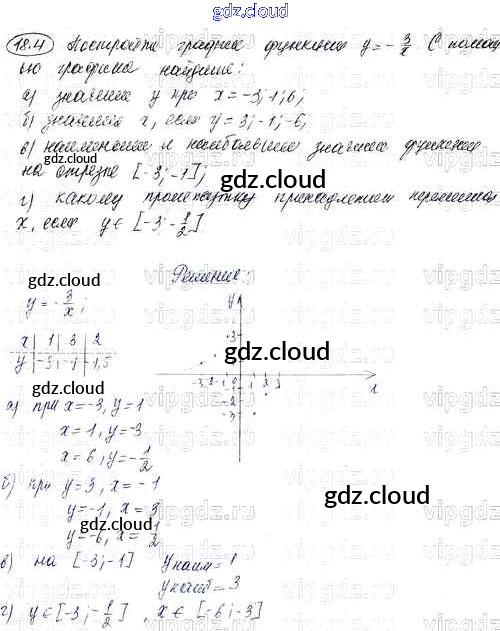 gdz.cloud
18.4 Постройте график функции y = -3/x. С помощ
ью графика найдите:
а) значение y при x = -3; 1; 6;
б) значения x, если y = 3; -1; -6;
в) наименьшее и наибольшее значение функции
на отрезке [-3; -1];
г) какому промежутку принадлежит переменная
x, если y ∈ [-3; -1/2]
Решение:
y = -3/x;
x | 1 | 3 | 2
y | -3 | -1 | -1,5
y
3
-3 -2 -1 0 1 2 3
x
-2
-3
а) при x = -3, y = 1
x = 1, y = -3
x = 6, y = -1/2
б) при y = 3, x = -1
y = -1, x = 3
y = -6, x = 1/2
в) на [-3; -1] yнаим = 1
yнаиб = 3
г) y ∈ [-3; -1/2], x ∈ [-6; -3]
gdz.cloud
gdz.cloud
gdz.cloud
gdz.cloud
gdz.cloud
gdz.cloud
gdz.cloud
gdz.cloud
vipgdz.ru